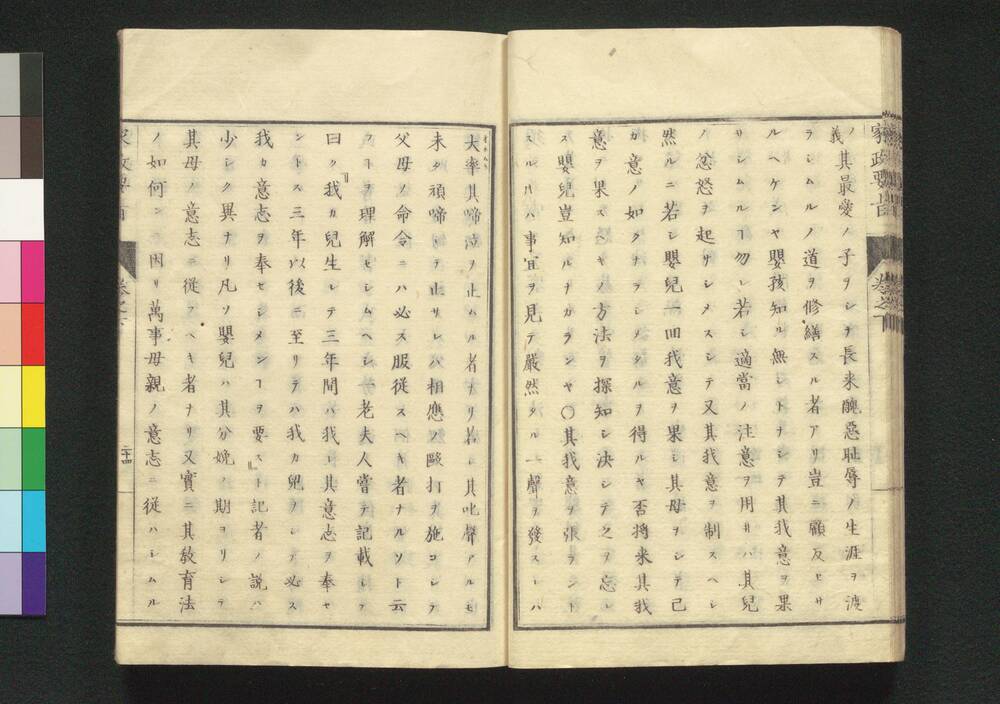 家政要旨
卷之下
ノ其最愛ノ子ヲシテ長来醜惡耻辱ノ生涯ヲ渡
義
ラシムルノ道ヲ修繕スル者アリ豈ニ顧反セサ
ルヘケンヤ嬰孩知ル無シトナシテ其我意ヲ果
サシムルヿ勿レ若シ適當ノ注意ヲ用サハ其兒
ノ忿怒ヲ起サシメスシテ又其我意ヲ制スヘシ
然ルニ若シ嬰兒一回我意ヲ果シ其母ヲシテ己
カ意ノ如クナラシメタルヲ得ルヤ否将来其我
意ヲ果スヘキノ方法ヲ探知シ決シテ之ヲ忘レ
ス嬰兒豈知ルナカランヤ〇其我意ヲ張ラント
スルハ事宜ヲ見テ嚴然タル一聲ヲ發スレハ
大率其啼泣ヲ止ムル者ナリ若シ其叱聲アルモ
未タ頑啼シテ止サレハ相應ノ毆打ヲ施コシテ
父母ノ命令ニハ必ス服從スヘキ者ナルソト云
フヿヲ理解セシムヘシ老夫人嘗テ記載シテ
曰ク『我カ兒生レテ三年間ハ我レ其意志ヲ奉セ
ントス三年以後ニ至リテハ我カ兒ヲシテ必ス
我カ意志ヲ奉セシメンヿヲ要ス』ト記者ノ說ハ
少シク異ナリ凡ソ嬰兒ハ其分娩ノ期ヨリシテ
其母ノ意志ニ從フヘキ者ナリ又實ニ其教育法
ノ如何ンニ因リ萬事母親ノ意志ニ從ハシムル
二十四